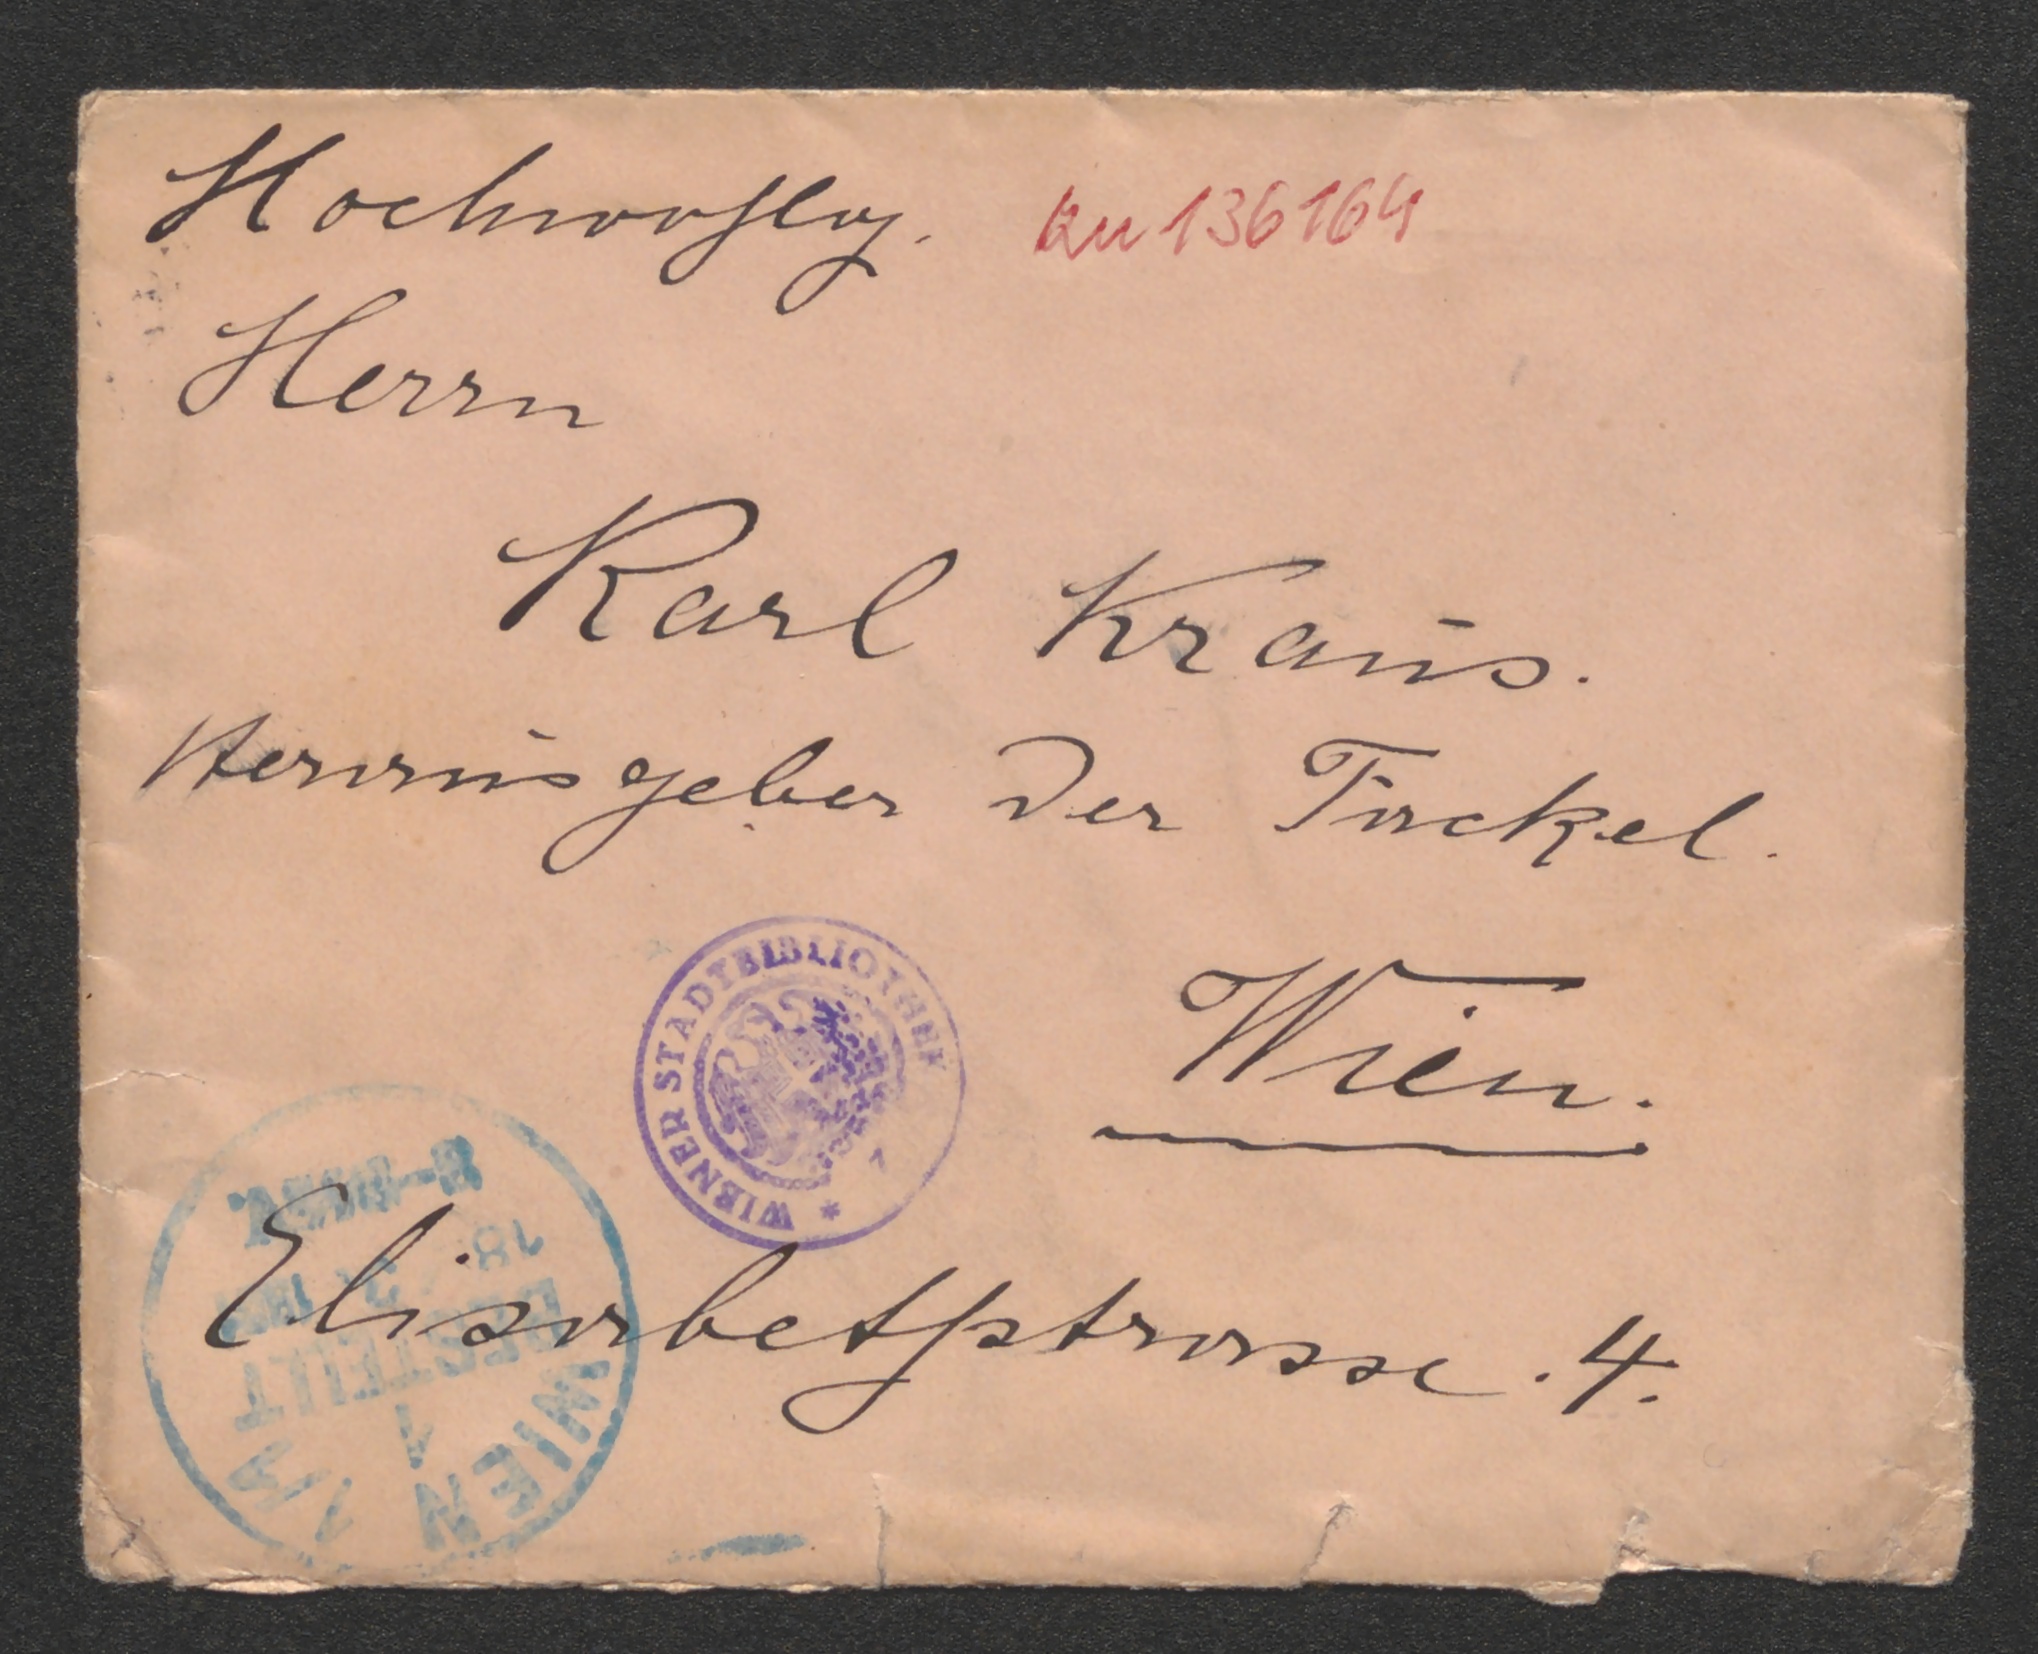 Hochwohlg. KU 136164
Herrn
Karl Kraus.
Herausgeber der Fackel.
WIENER STADTBIBLIOTHEK *
Wien.
Elisabethstrasse. 4.
WIEN 1/1
BESTELLT
18